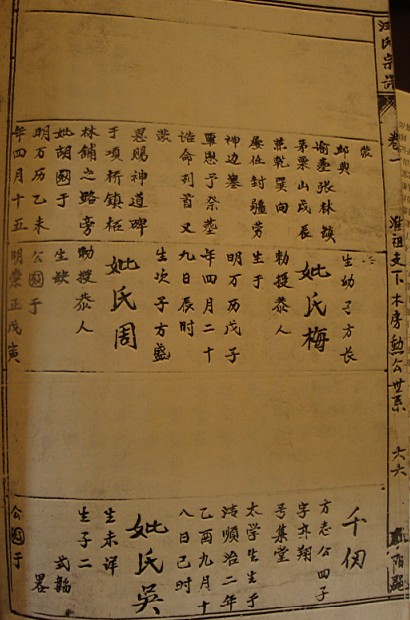 汪氏宗谱
卷一
淮祖支下木房勲公世系
六六
蒙
邮典
谕塋张林
茅栗山戌辰
兼乾巽向
屡任封疆劳
神边塞
覃恩予祭塟
诰命列首又
蒙
恩赐神道碑
于项桥镇柘
林铺之路旁
妣胡于
明万历乙未
年四月十五
生幼子方长
妣氏梅
勅授恭人
生于
明万历戊子
年四月二十
九日辰时
生次子方盛
妣氏周
勅授恭人
生缺
公于
明崇正戊寅
千仞
方志公四子
字亦翔
号集堂
太学生生于
清顺治二年
乙酉九月十
八日己时
妣氏吴
生未详
生子二
畧
公于